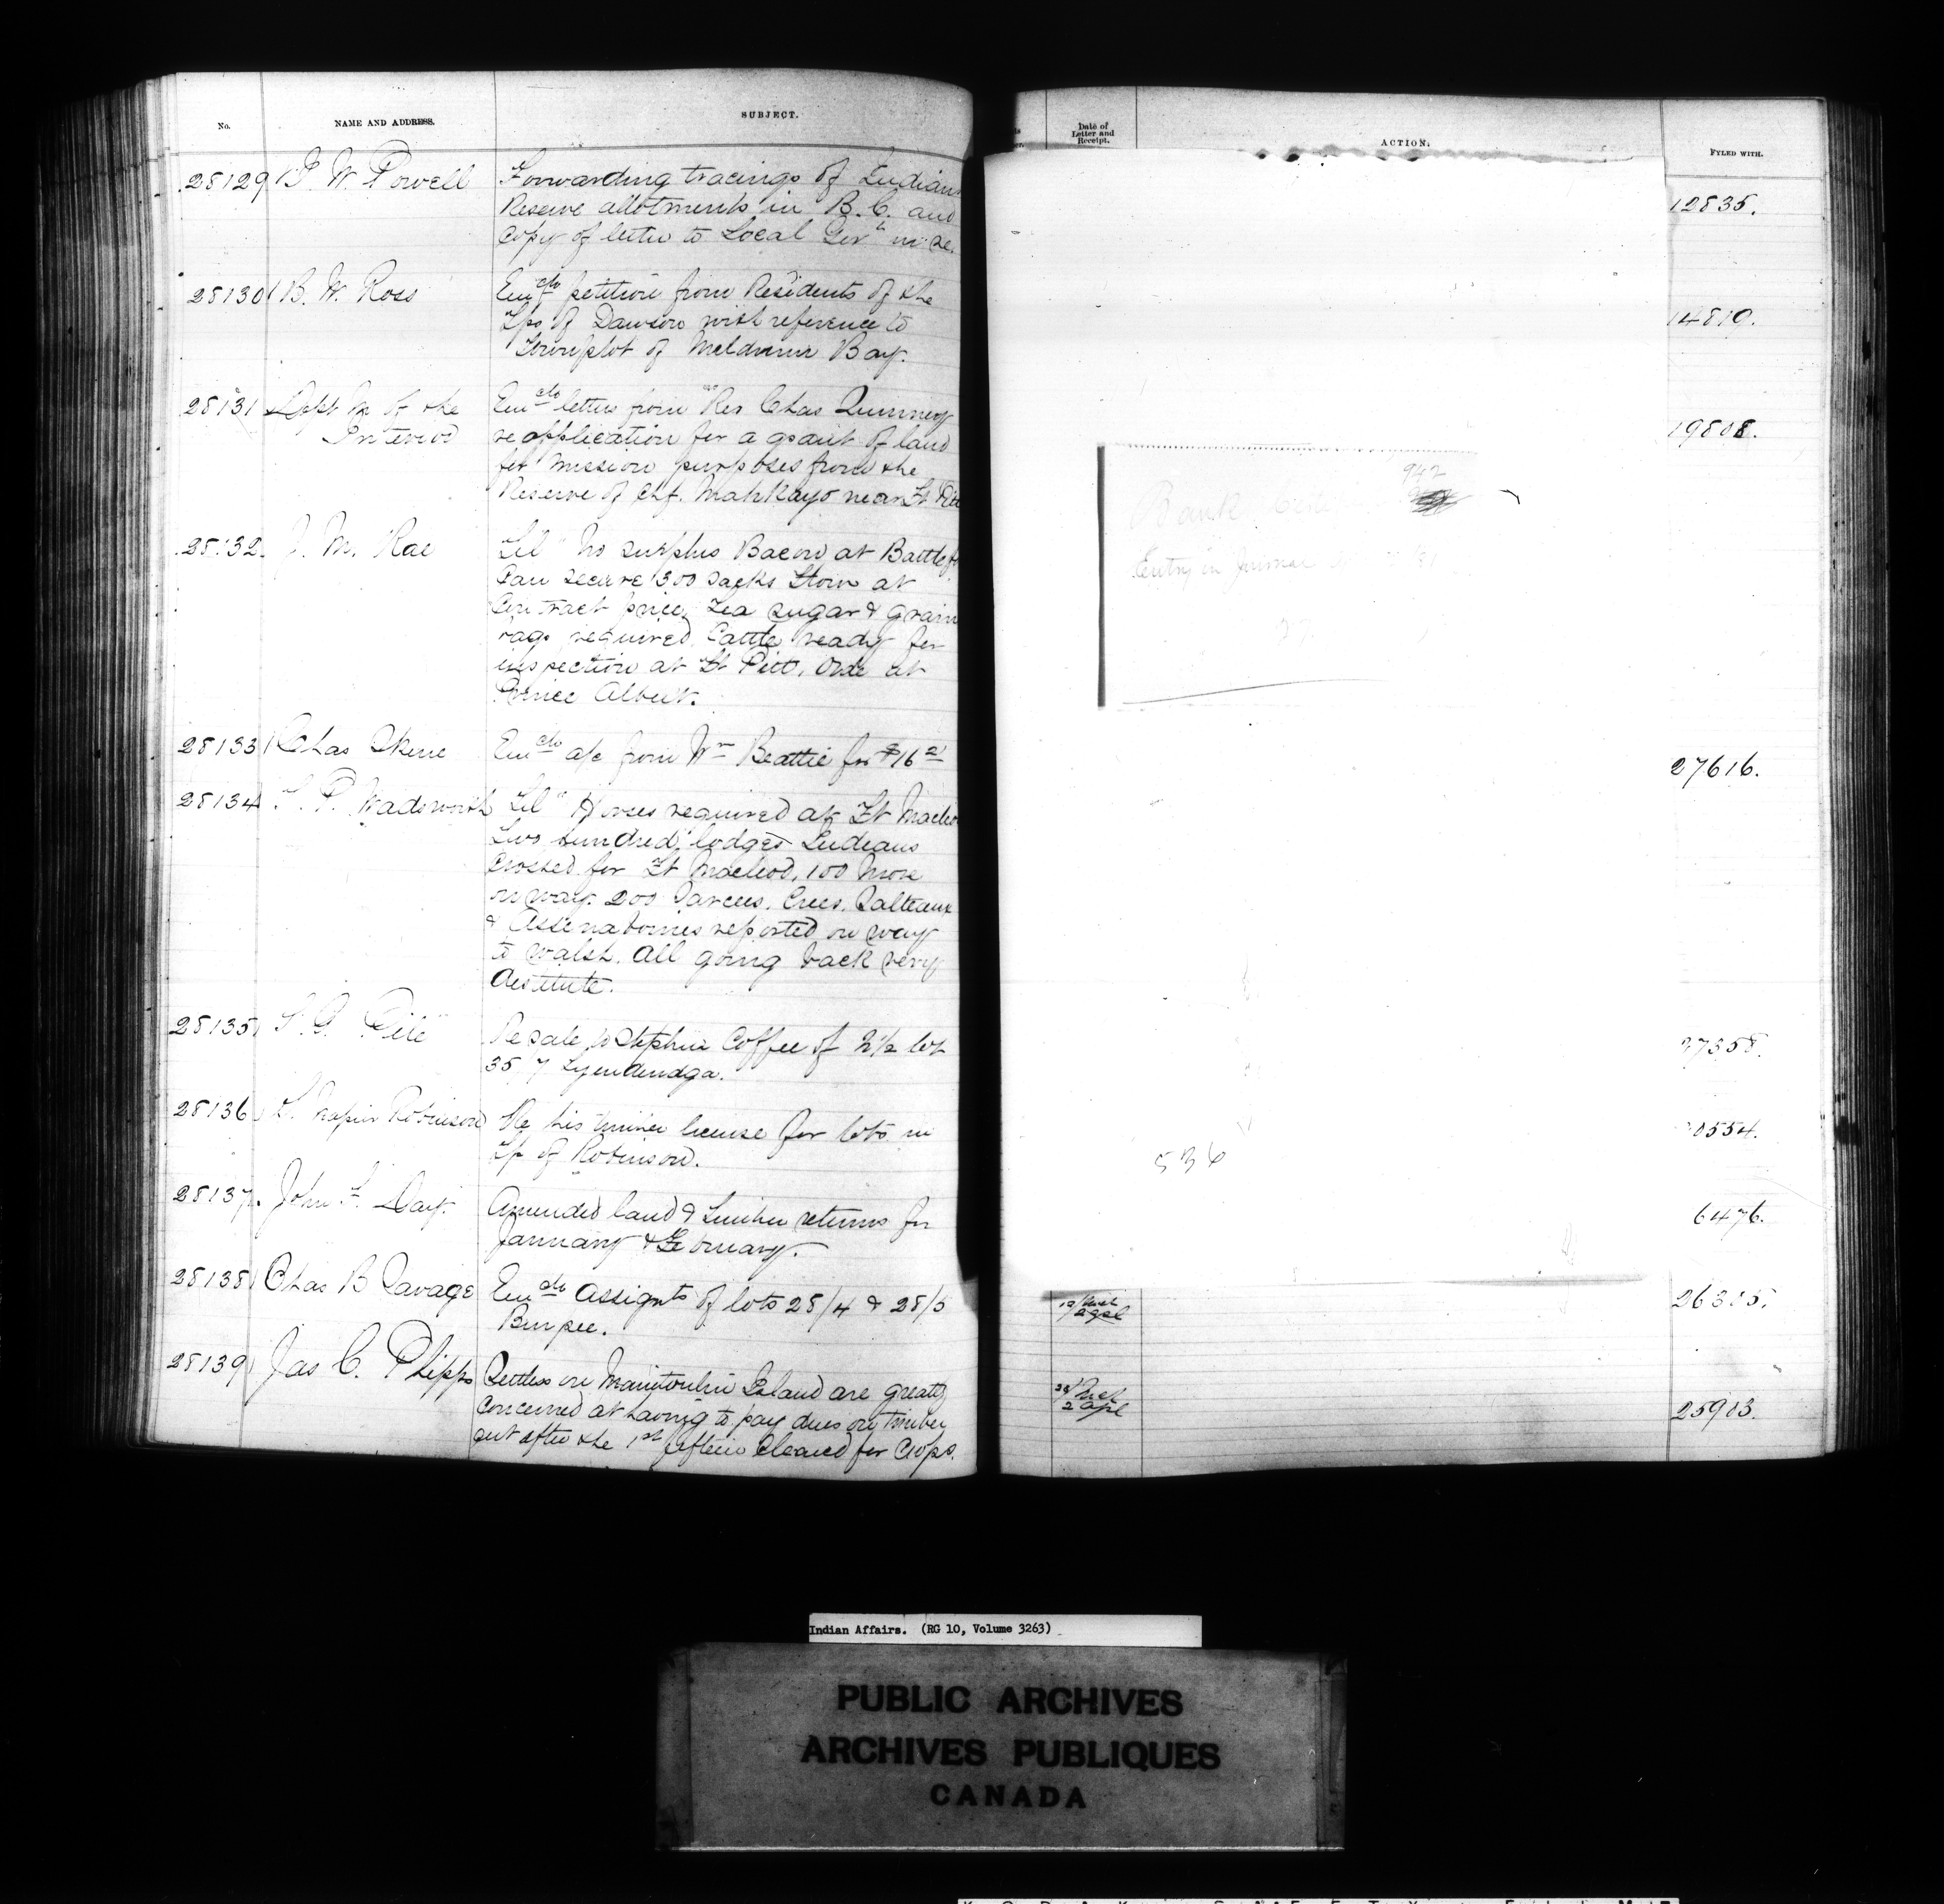 No.
NAME AND ADDRESS.
SUBJECT.
28129 I. W. Powell
Forwarding tracings of Indian
Reserve allotments in B.C. and
Copy of letter to Local Govt in re.
28130 B. W. Ross
Enclo petition from Residents of the
Tps of Dawson with reference to
Townplot of Meldrum Bay.
28131 Dept M of the
Interior
Enclo letter from Rev Chas Quinney
re application for a grant of land
for mission purposes from the
Reserve of Chf. Mahkayo near Ft Pitt
28132. J. M. Rae
Tel" No surplus Bacon at Battlef
Can secure 300 sacks flour at
Contract price. Tea sugar & grain
required. Cattle ready for
inspection at Ft Pitt. One at
Prince Albert.
28133 Chas Skene
Enclo a/c from Wm Beattie for $16
28134 T. P. Wadsworth
Tel" Horses required at Ft Macleo
Two hundred lodges Indians
Crossed for Ft Macleod, 100 more
on way. 200 Sarcees, Crees, Salteaux
& Assinaboines reported on way
to Walsh. All going back very
destitute.
28135 S. G.
Re sale to Stephen Coffee of N½ lot
35/7 Tyendenaga.
28136 T. Napier Robinson
Re his timber license for lots in
Tp of Robinson.
28137. John F. Day.
Amended land & timber returns for
January & February.
28138 Chas B Savage
Enclo Assignts of lots 28/4 & 28/5
Burpee.
28139 Jas C. Phipps
Settlers on Manitoulin Island are greatly
Concerned at having to pay dues on timber
cut after the 1st fifteen Cleared for Crops.
Date of
Letter and
Receipt.
ACTION.
FYLED WITH.
12835.
14819.
19808.
942
Bank
Entry in Journal
27616.
27358.
0554.
536
6476.
26305.
25903.
Indian Affairs. (RG 10, Volume 3263)
PUBLIC ARCHIVES
ARCHIVES PUBLIQUES
CANADA